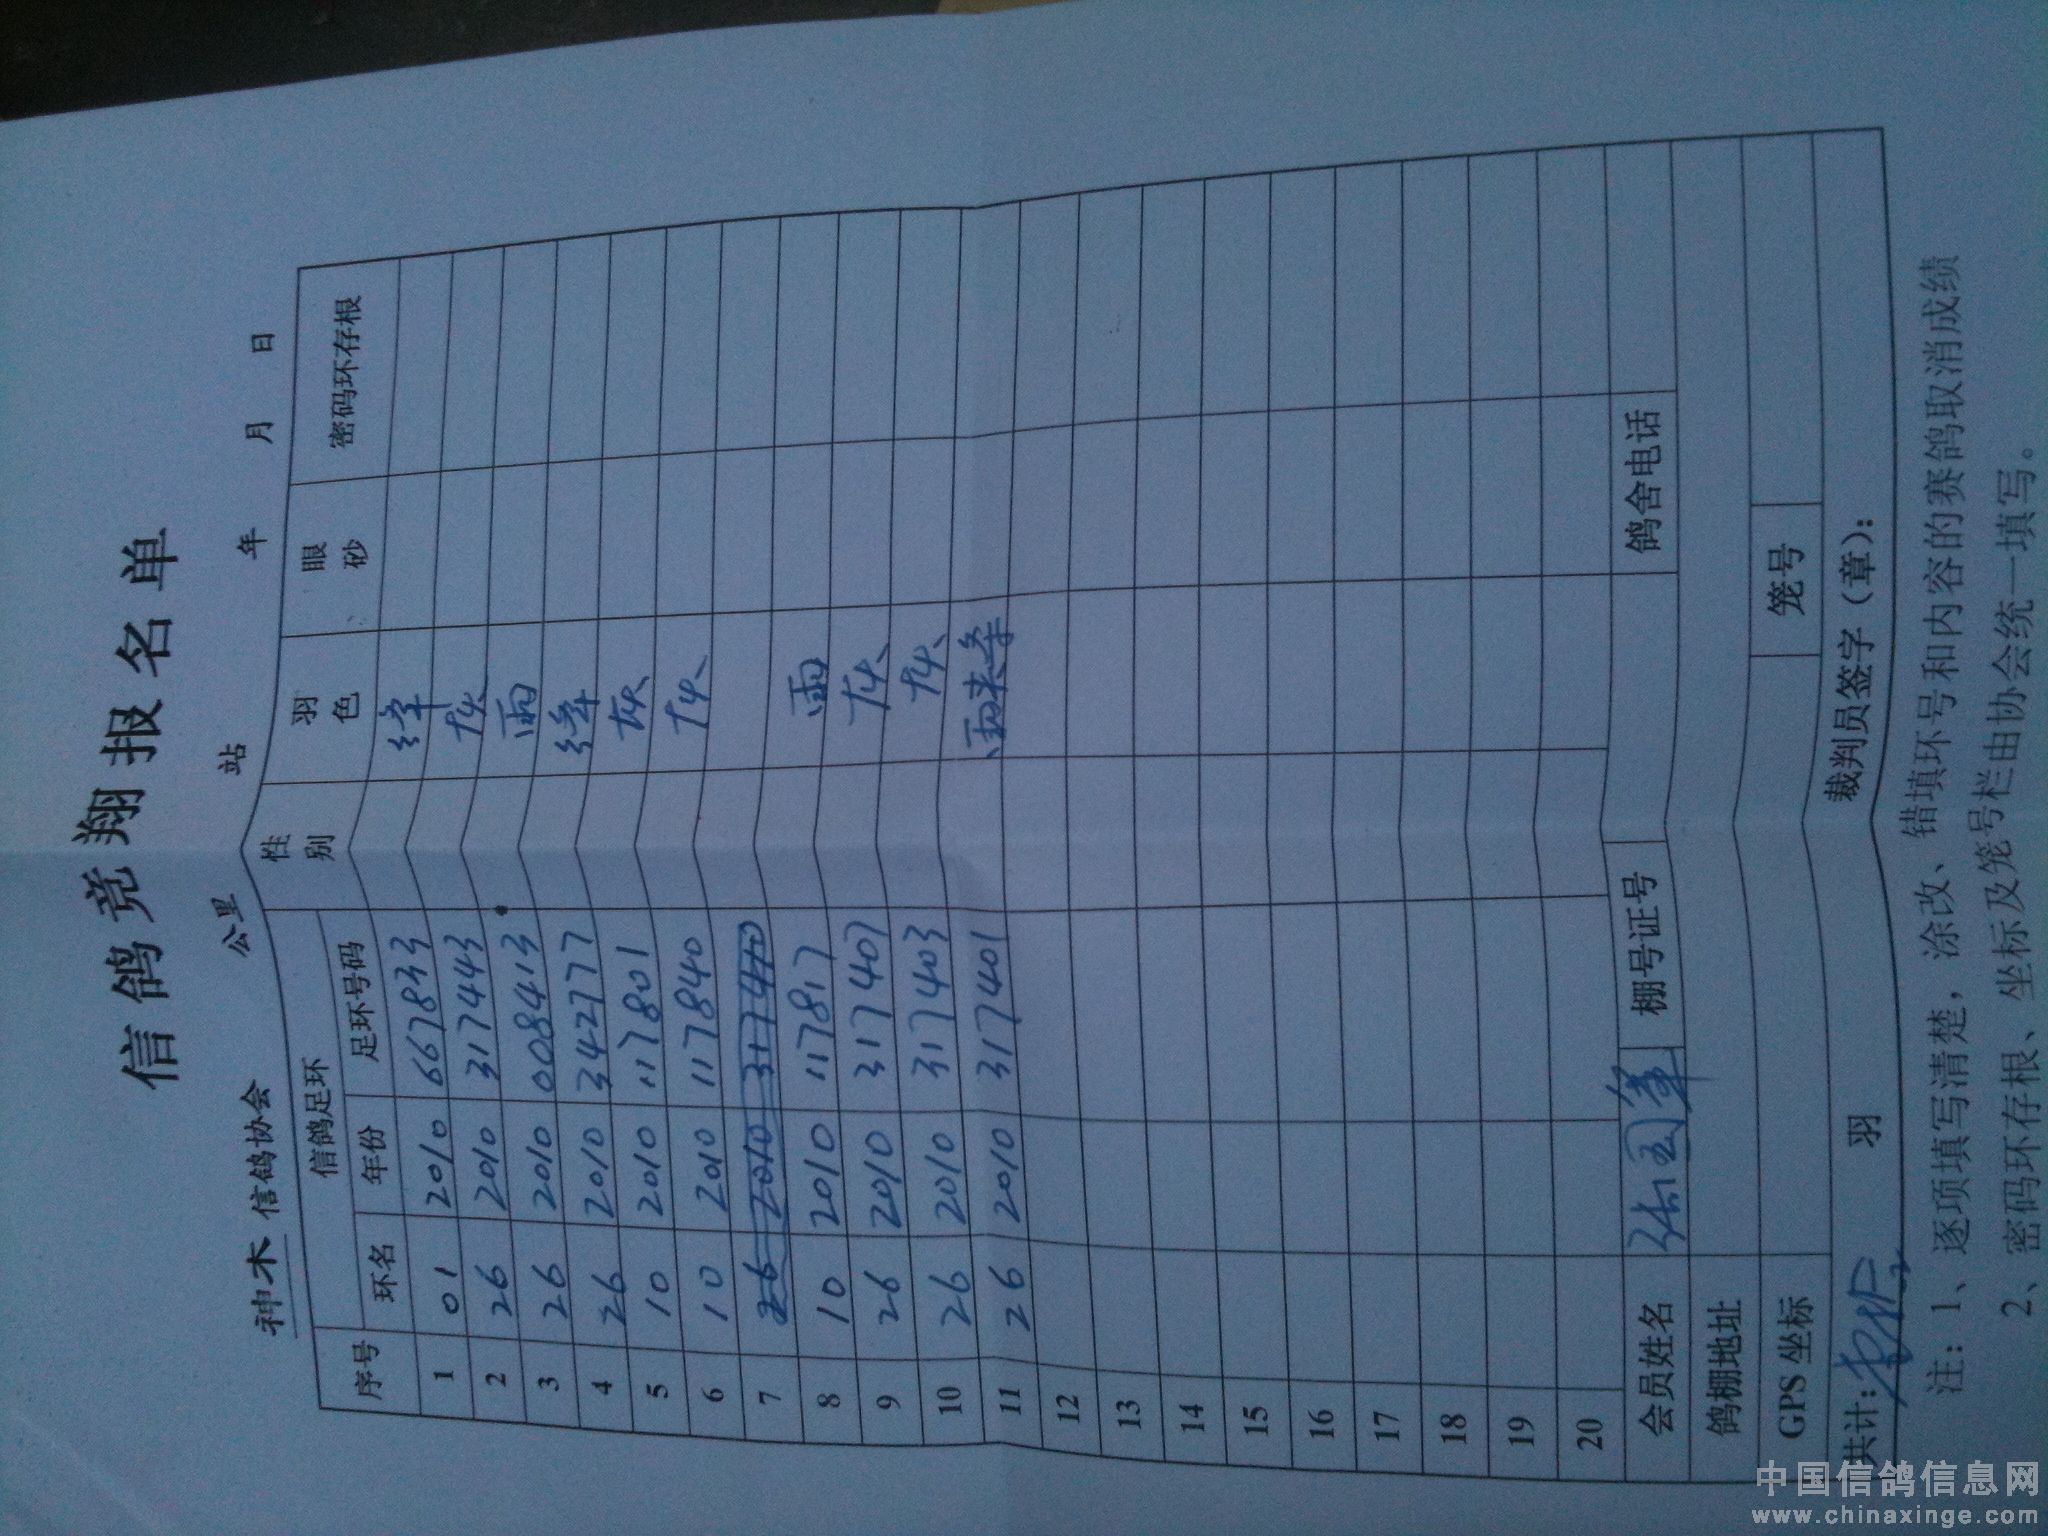 信鸽竞翔报名单
神木 信鸽协会 公里 站 年 月 日
序号 信鸽足环 性别 羽色 眼砂 密码环存根
环名 年份 足环号码
1 01 2010 667833 绛
2 26 2010 317443 灰
3 26 2010 008413 雨
4 26 2010 342777 绛
5 10 2010 117801 灰
6 10 2010 117840 灰
7 26 2010
8 10 2010 117817 雨
9 26 2010 317407 灰
10 26 2010 317403 灰
11 26 2010 317401 雨
12
13
14
15
16
17
18
19
20
会员姓名 张国军 棚号证号 鸽舍电话
鸽棚地址
GPS 坐标 笼号
共计: 羽 裁判员签字(章):
注:1、逐项填写清楚,涂改、错填环号和内容的赛鸽取消成绩
2、密码环存根、坐标及笼号栏由协会统一填写。
中国信鸽信息网
www.chinaxinge.com